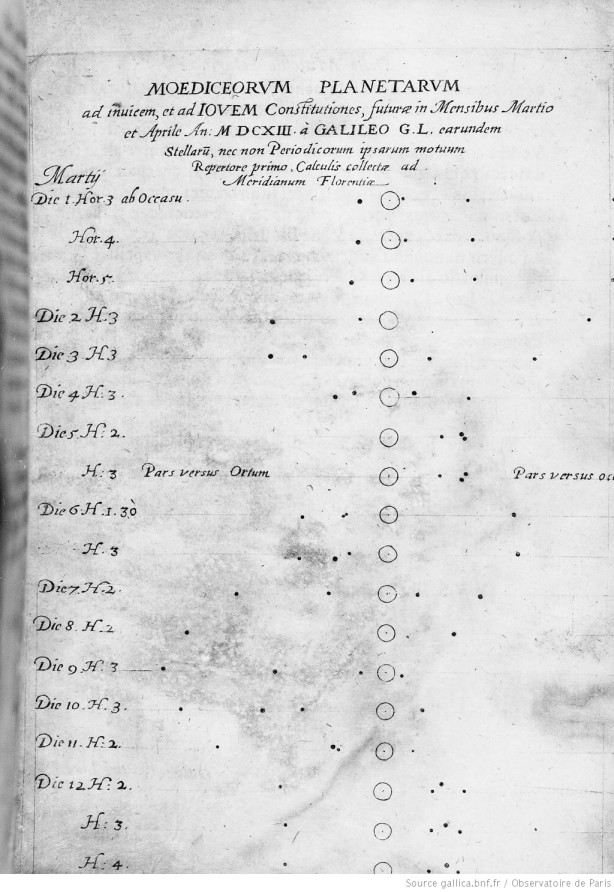 MOEDICEORVM PLANETARVM
ad inuicem, et ad IOVEM Constitutiones, futuræ in Mensibus Martio
et Aprile An: M DCXIII. à GALILEO G.L. earundem
Stellarũ, nec non Periodicorum ipsarum motuum
Repertore primo, Calculis collectæ ad
Meridianum Florentiæ
Martij
Die 1. Hor. 3 ab Occasu.
Hor. 4.
Hor. 5.
Die 2 H. 3
Die 3. H3
Die 4 H: 3.
Die 5. H: 2.
H: 3 Pars versus Ortum Pars versus occ
Die 6. H. 1. 30
H. 3
Die 7. H. 2.
Die 8. H. 2
Die 9. H: 3
Die 10. H. 3.
Die 11. H: 2.
Die 12 H: 2.
H: 3.
H: 4
Source gallica.bnf.fr / Observatoire de Paris